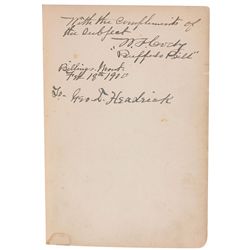 With the compliments of
the Subject
W. F. Cody
"Buffalo Bill"
Billings, Mont.
18th 1900
To- Geo. D. Headrick